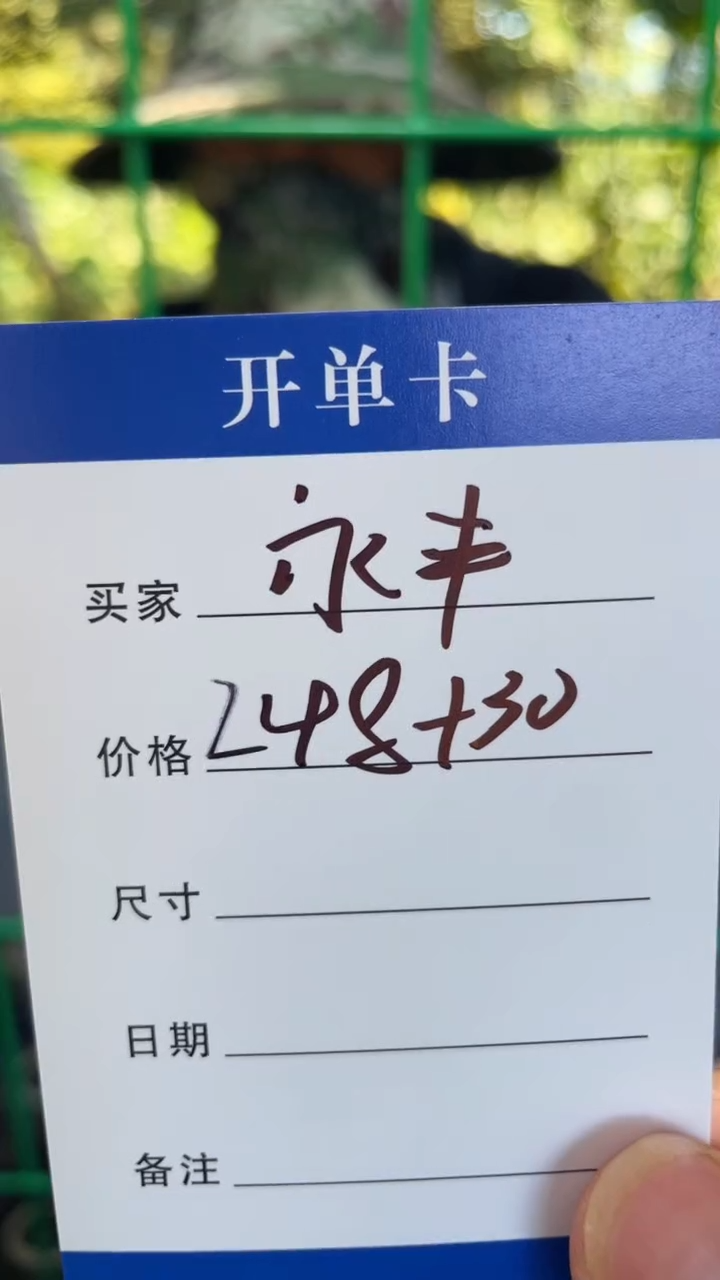 开单卡
买家 永丰
价格 248+30
尺寸
日期
备注